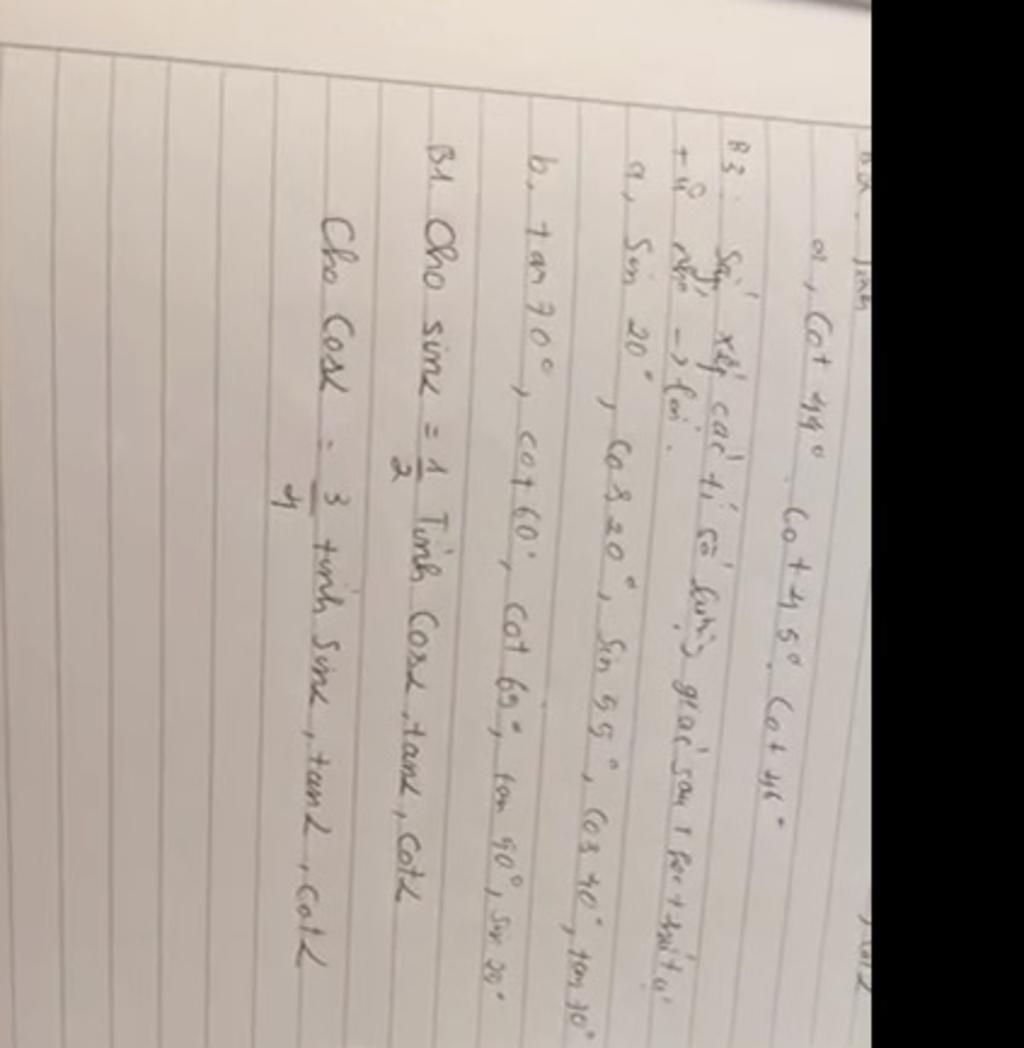 a, Cot 44° . Cot 45° . Cot 46°
B3. Sắp xếp các tỉ số lượng giác sau theo thứ tự
từ nhỏ → lớn.
a, Sin 20°, Cos 20°, Sin 55°, Cos 40°, tan 70°
b, tan 70°, cot 60°, cot 65°, tan 50°, sin 20°
B1 Cho sinα = 1/2 Tính Cosα, tanα, cotα
Cho Cosα = 3/4 tính Sinα, tanα, cotα